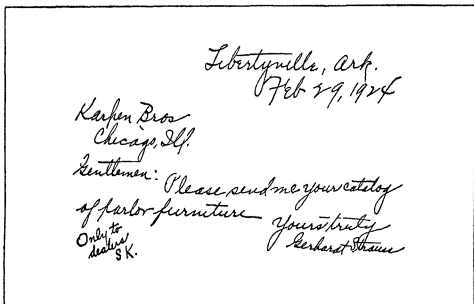 Libertyville, Ark.
Feb 29, 1924
Karpen Bros
Chicago, Ill.
Gentlemen:
Please send me your catalog
of parlor furniture
Yours truly
Gerhardt Strauss
Only to
dealers
S K.